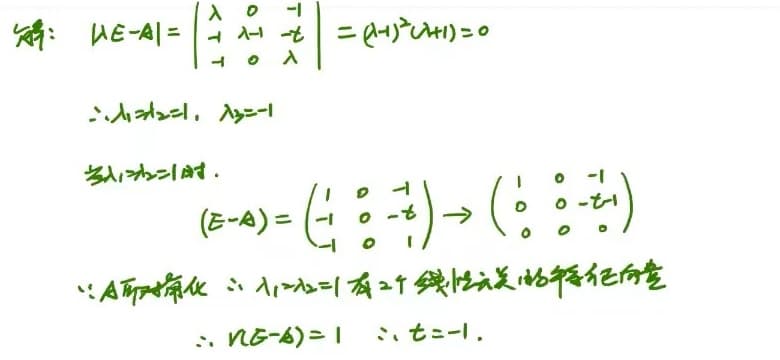 解： |λE-A| = | λ 0 -1 ; -1 λ-1 -t ; -1 0 λ | = (λ-1)²(λ+1)=0
∴λ₁=λ₂=1, λ₃=-1
当λ₁=λ₂=1时.
(E-A) = ( 1 0 -1 ; -1 0 -t ; -1 0 1 ) → ( 1 0 -1 ; 0 0 -t-1 ; 0 0 0 )
∵A可对角化 ∴ λ₁=λ₂=1有2个线性无关的特征向量
∴ r(E-A)=1 ∴ t=-1.